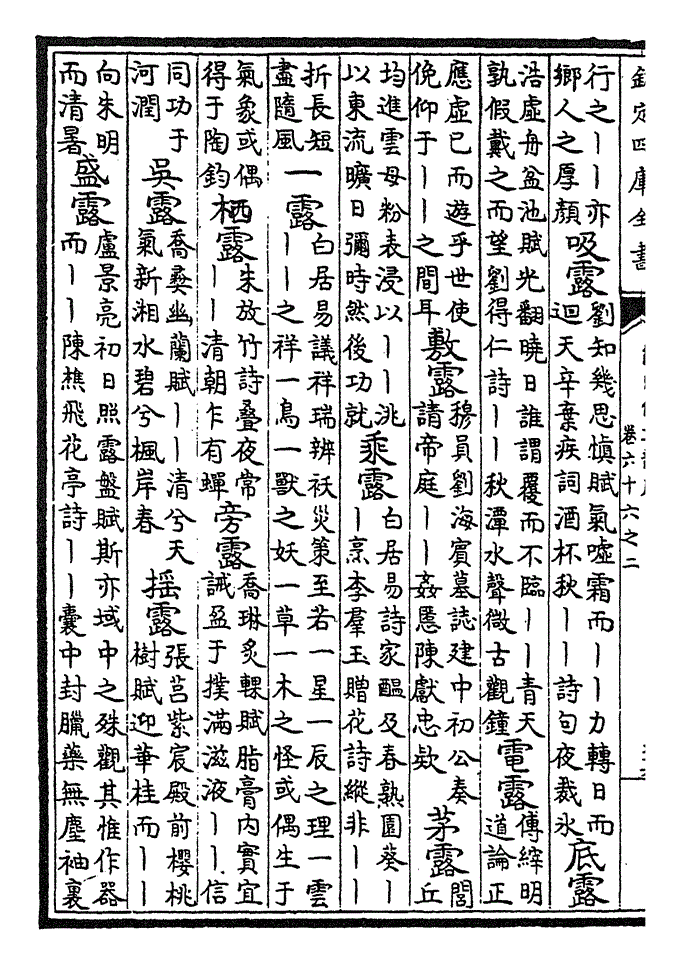 欽定四庫全書
卷六十六之二
行之丨丨亦
鄉人之厚顔
吸露
劉知幾思慎賦氣噓霜而丨丨力轉日而
迴天辛棄疾詞酒杯秋丨丨詩句夜裁氷
底露
浩虛舟盆池賦光翻曉日誰謂覆而不臨丨丨青天
孰假戴之而望劉得仁詩丨丨秋潭水聲微古觀鐘
電露
傅縡明
道論正
應虛已而遊乎世使
俛仰于丨丨之間耳
敷露
穆員劉海賓墓誌建中初公奏
請帝庭丨丨姦慝陳獻忠欵
茅露
閭
丘
均進雲母粉表浸以丨丨洮
以東流曠日彌時然後功就
乘露
白居易詩家醖及春熟園葵丨
丨烹李羣玉贈花詩縱非丨丨
折長短
盡隨風
一露
白居易議祥瑞辨祅災策至若一星一辰之理一雲
丨丨之祥一鳥一獸之妖一草一木之怪或偶生于
氣象或偶
得于陶鈞
栖露
朱放竹詩疊夜常
丨丨清朝乍有蟬
旁露
喬琳炙輠賦脂膏内實宜
誡盈于撲滿滋液丨丨信
同功于
河潤
吳露
喬彝幽蘭賦丨丨清兮天
氣新湘水碧兮楓岸春
摇露
張莒紫宸殿前櫻桃
樹賦迎華桂而丨丨
向朱明
而清暑
盛露
盧景亮初日照露盤賦斯亦域中之殊觀其惟作器
而丨丨陳樵飛花亭詩丨丨囊中封臘藥無塵袖裏